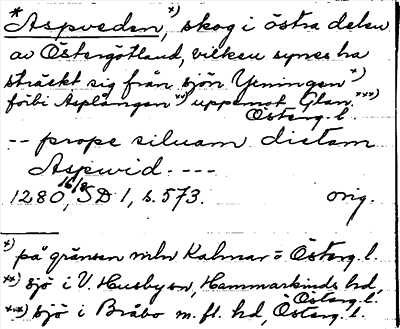 *Aspveden *), skog i östra delen
av Östergötland, vilken synes ha
sträckt sig från sjön Yxningen *)
förbi Asplången **) uppemot Glan ***)
Österg. l.
-- prope siluam dictam
Aspwid. ----
1280 16/8, SD 1, s. 573. orig.
*) på gränsen mln Kalmar o Österg. l.
**) sjö i V. Husby sn, Hammarkinds hd,
Österg. l.
***) sjö i Bråbo m. fl. hd, Österg. l.